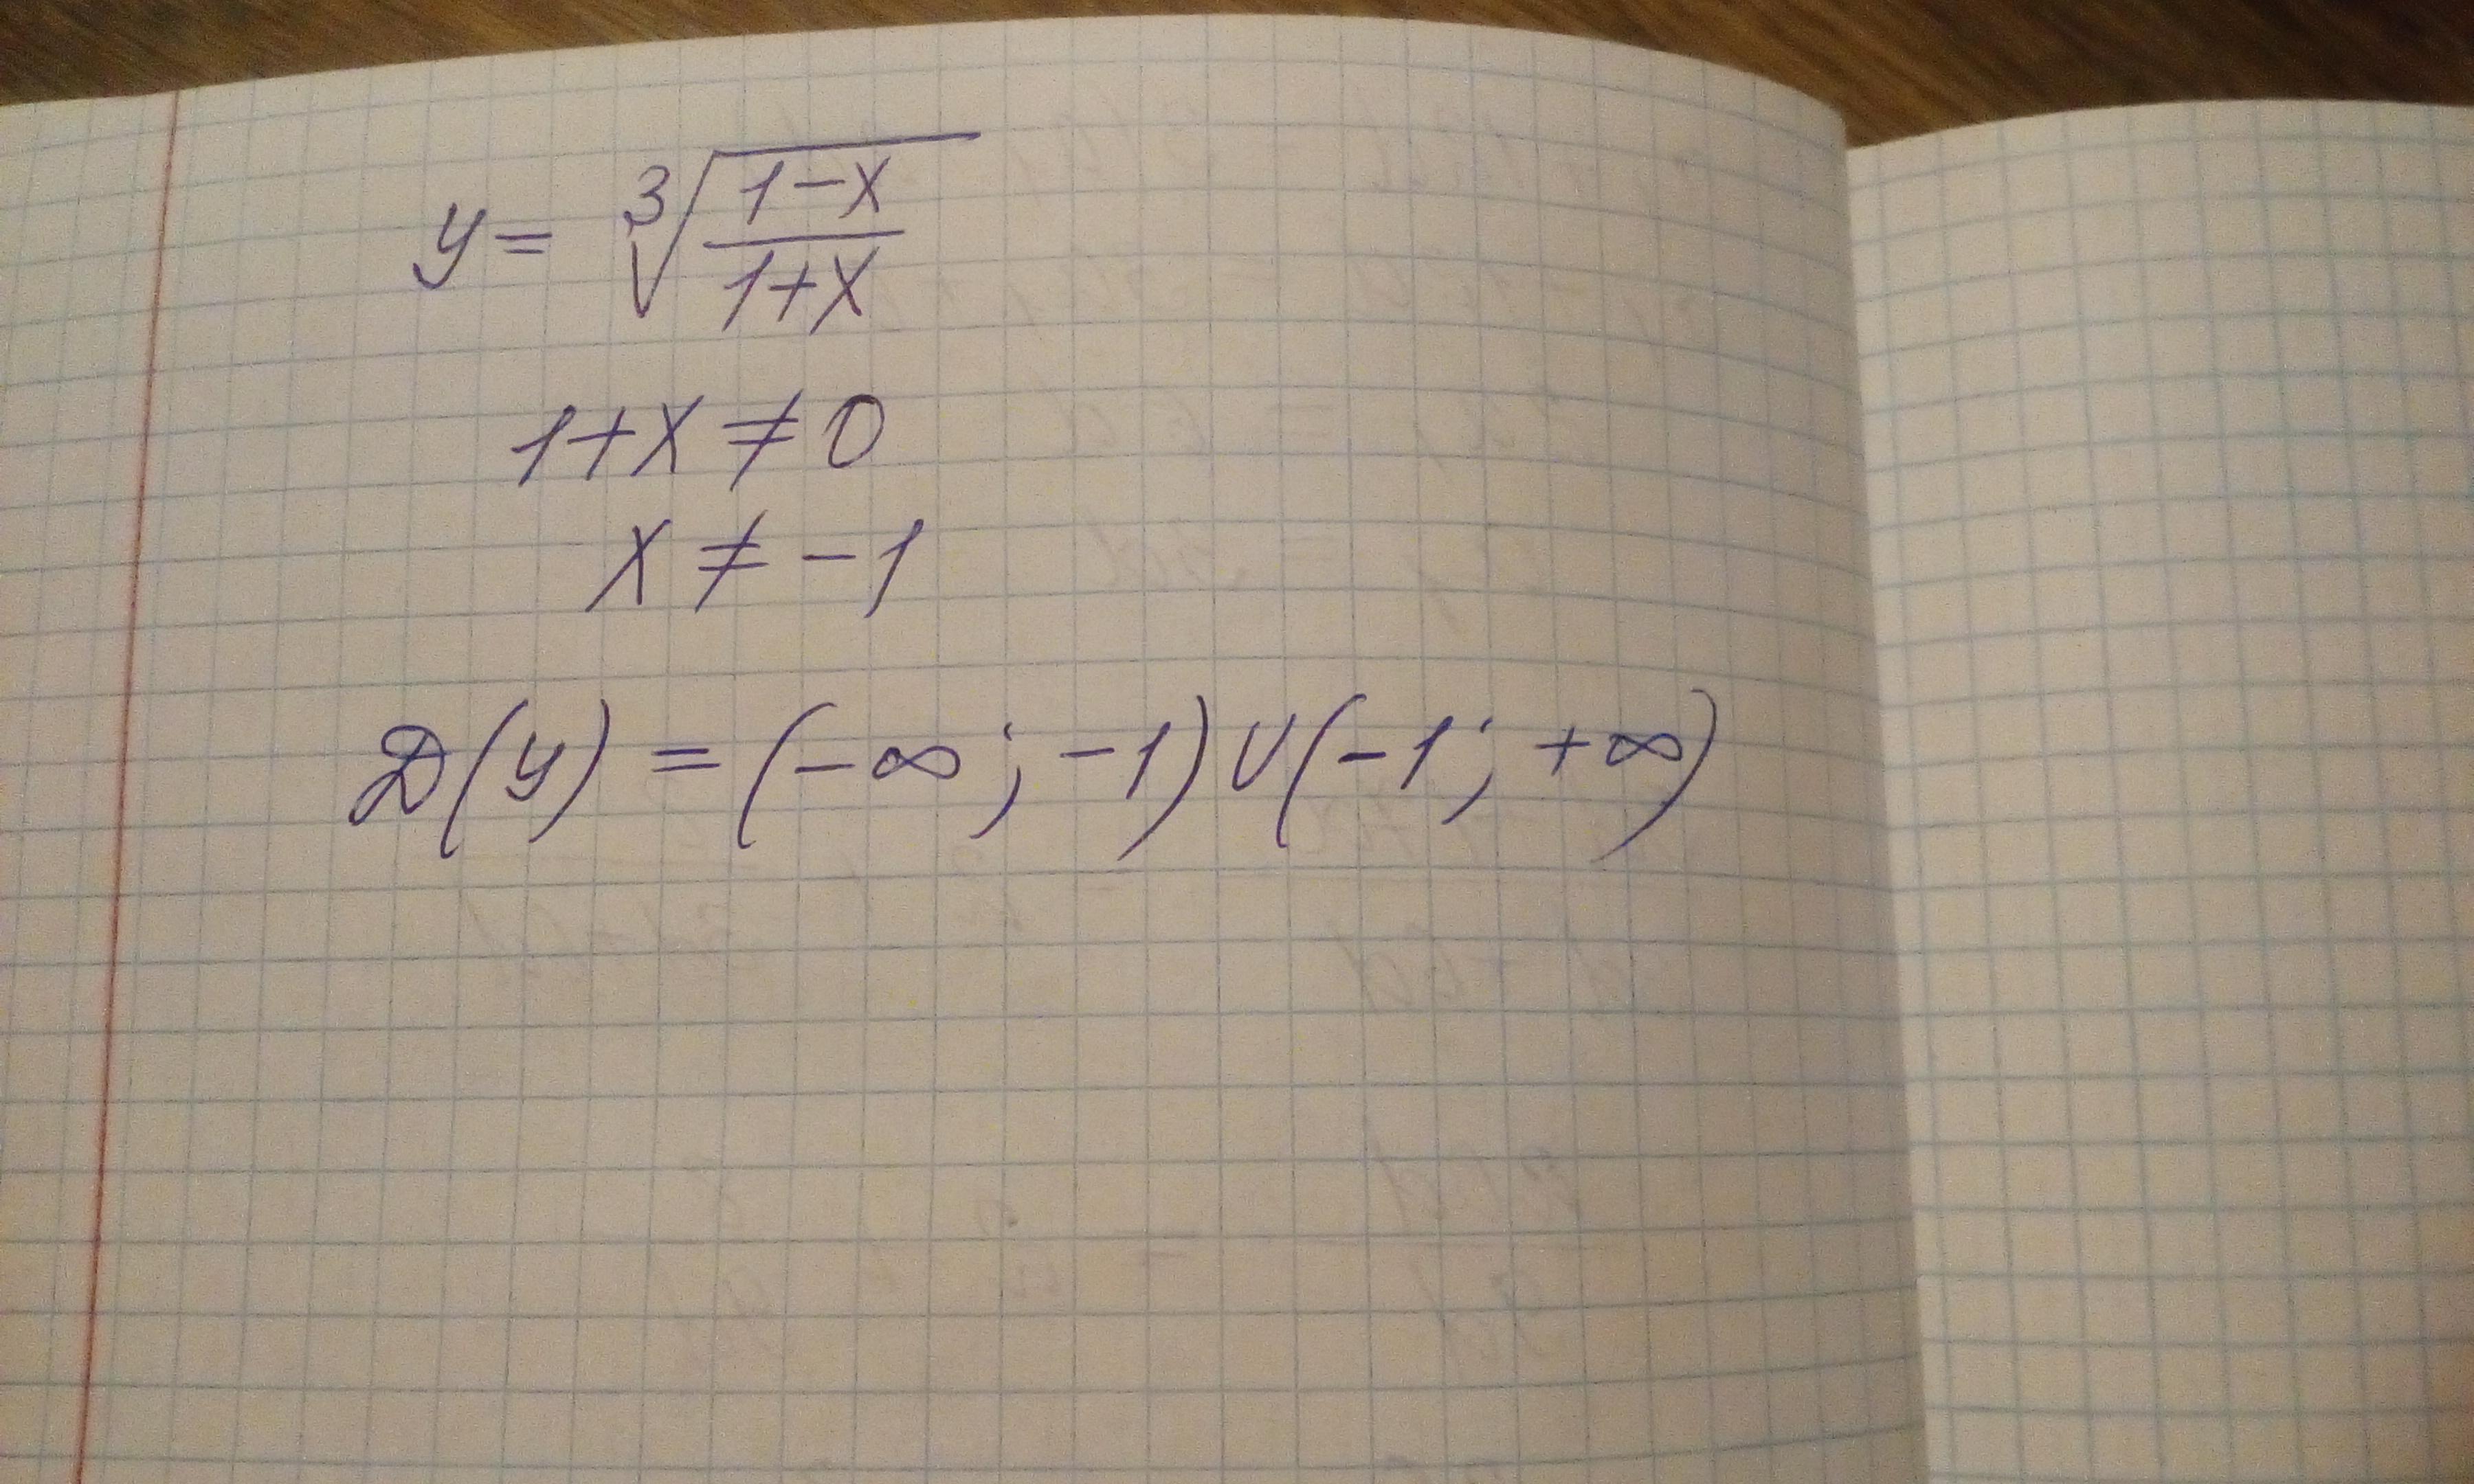 y = ∛((1-x)/(1+x))
1+x ≠ 0
x ≠ -1
D(y) = (-∞; -1) ∪ (-1; +∞)